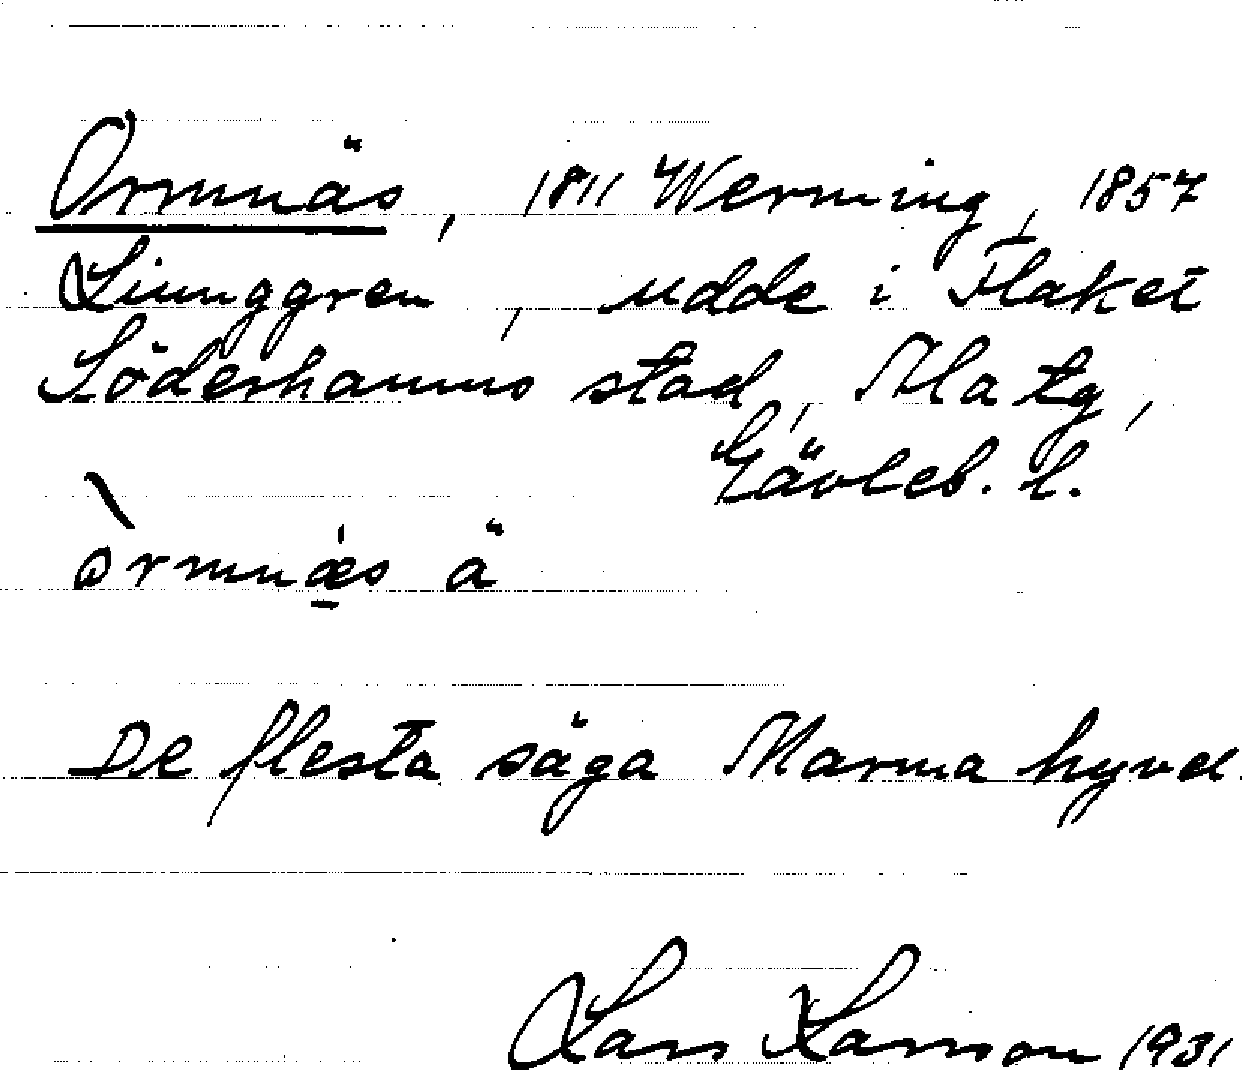 Ormnäs, 1811 Werming, 1857
Liunggren, udde i Flaket
Söderhamns stad, Ala tg,
Gävleb. l.
òrmnæ̱s ä
De flesta säga Marma hyvel
Lars Larsson 1931